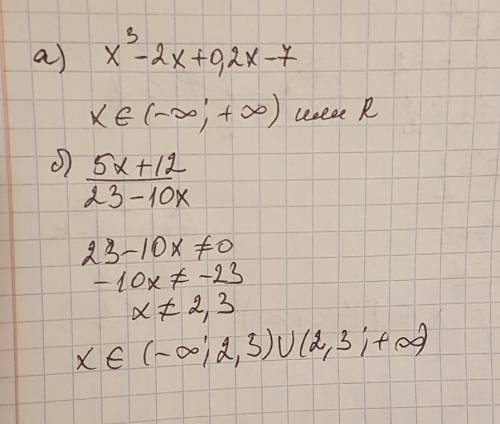 а) x³-2x+0,2x-7
x∈(-∞;+∞) или R
б) 5x+12
23-10x
23-10x≠0
-10x≠-23
x≠2,3
x∈(-∞;2,3)∪(2,3;+∞)